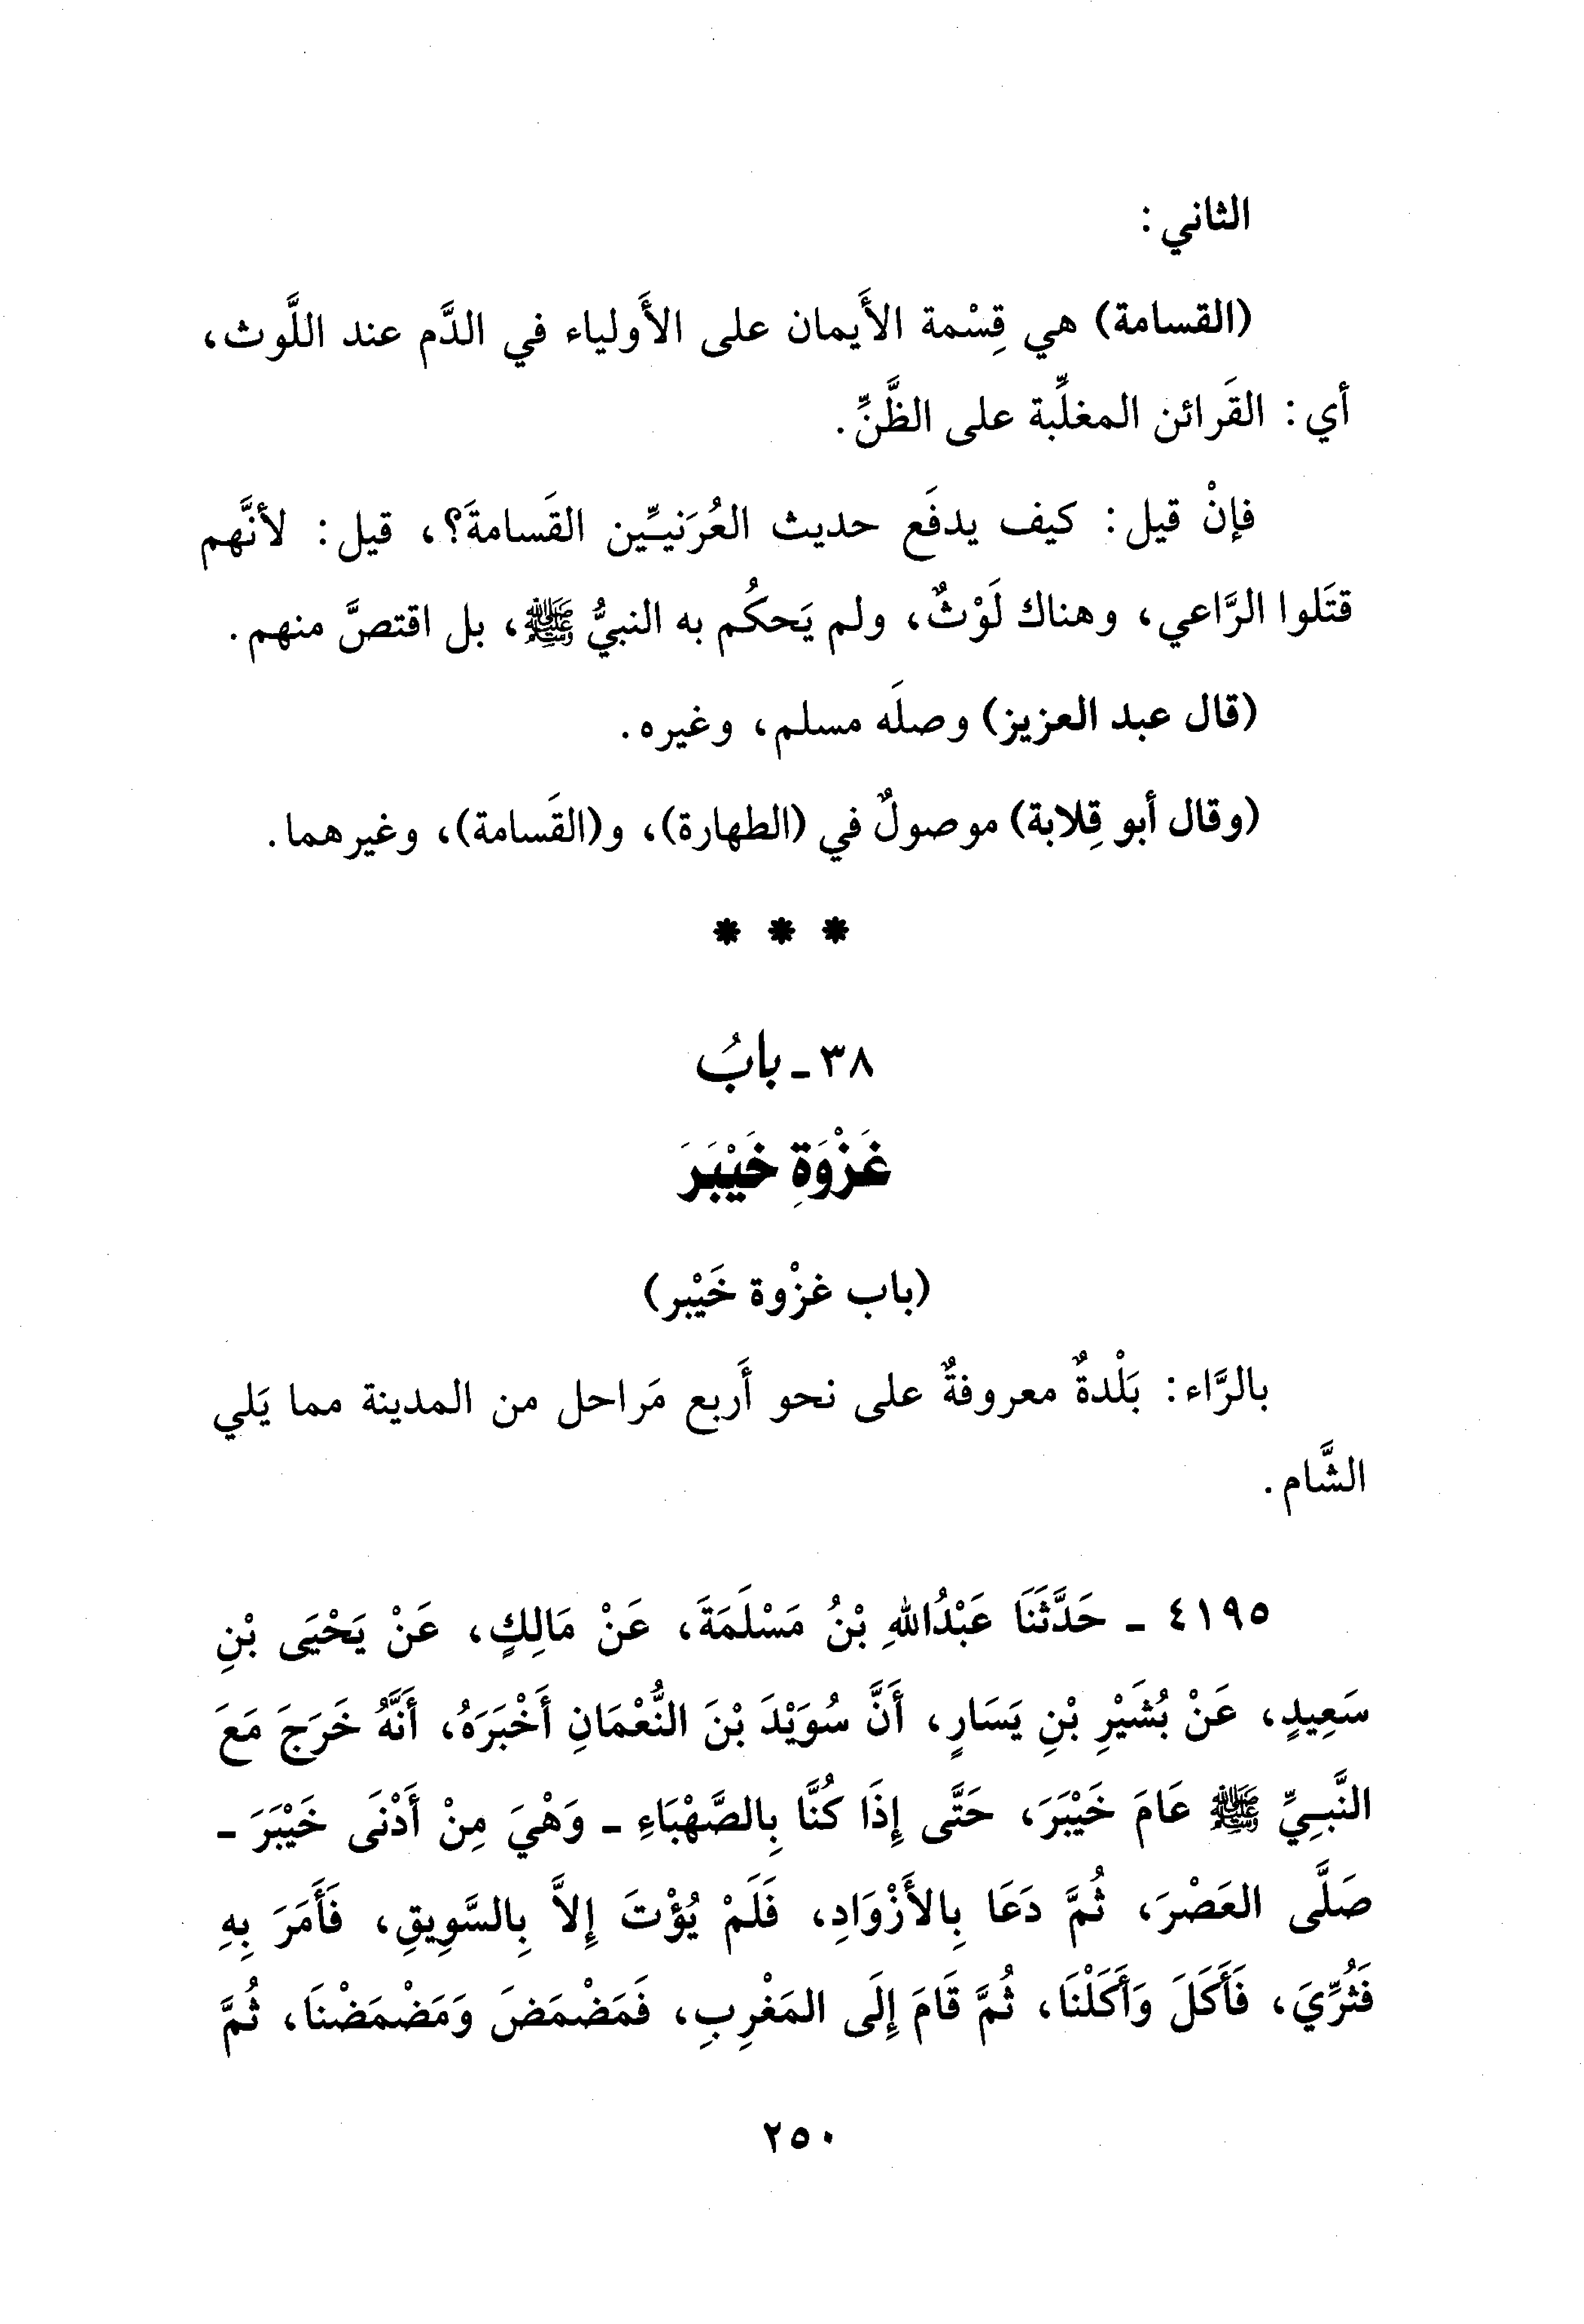 الثاني:
(القسامة) هي قِسْمة الأَيمان على الأَولياء في الدَّم عند اللَّوث،
أي: القَرائن المغلِّبة على الظَّنِّ.
فإنْ قيل: كيف يدفَع حديث العُرَنيِّين القَسامةَ؟، قيل: لأنَّهم
قتَلوا الرَّاعي، وهناك لَوْثٌ، ولم يَحكُم به النبيُّ ﷺ، بل اقتصَّ منهم.
(قال عبد العزيز) وصلَه مسلم، وغيره.
(وقال أبو قِلابة) موصولٌ في (الطهارة)، و(القَسامة)، وغيرهما.
* * *
٣٨ - بابُ
غَزْوَةِ خَيْبَرَ
(باب غزْوة خَيْبر)
بالرَّاء: بَلْدةٌ معروفةٌ على نحو أَربع مَراحل من المدينة مما يَلي
الشَّام.
٤١٩٥ - حَدَّثَنَا عَبْدُاللهِ بْنُ مَسْلَمَةَ، عَنْ مَالِكٍ، عَنْ يَحْيَى بْنِ
سَعِيدٍ، عَنْ بُشَيْرِ بْنِ يَسَارٍ، أَنَّ سُوَيْدَ بْنَ النُّعْمَانِ أَخْبَرَهُ، أَنَّهُ خَرَجَ مَعَ
النَّبِيِّ ﷺ عَامَ خَيْبَرَ، حَتَّى إِذَا كُنَّا بِالصَّهْبَاءِ - وَهْيَ مِنْ أَدْنَى خَيْبَرَ -
صَلَّى العَصْرَ، ثُمَّ دَعَا بِالأَزْوَادِ، فَلَمْ يُؤْتَ إِلاَّ بِالسَّوِيقِ، فَأَمَرَ بِهِ
فَثُرِّيَ، فَأَكَلَ وَأَكَلْنَا، ثُمَّ قَامَ إِلَى المَغْرِبِ، فَمَضْمَضَ وَمَضْمَضْنَا، ثُمَّ
٢٥٠